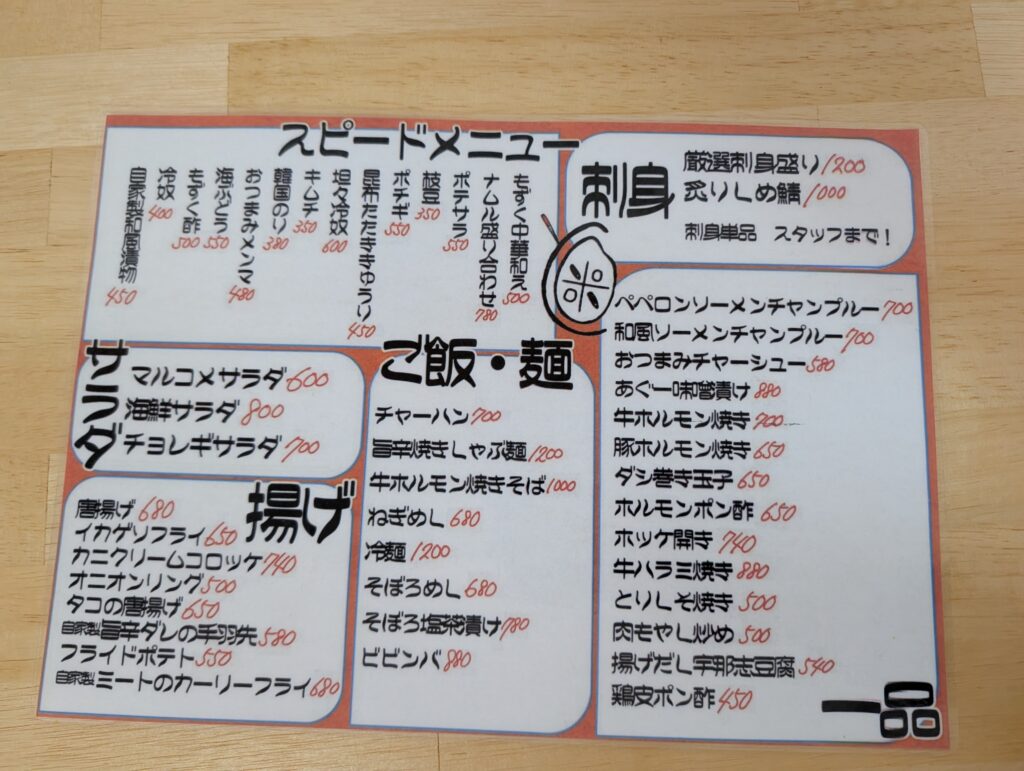 スピードメニュー
もずく中華和え 500
ナムル盛り合わせ 780
ポテサラ 550
枝豆 350
ポチギ 550
昆布たたききゅうり 450
坦々冷奴 600
キムチ 350
韓国のり 380
おつまみメンマ 480
海ぶどう 550
もずく酢 500
冷奴 400
自家製和風漬物 450
刺身
厳選刺身盛り 1200
炙りしめ鯖 1000
刺身単品 スタッフまで!
米
サラダ
マルコメサラダ 600
海鮮サラダ 800
チョレギサラダ 700
揚げ
唐揚げ 680
イカゲソフライ 650
カニクリームコロッケ 740
オニオンリング 500
タコの唐揚げ 650
自家製旨辛ダレの手羽先 580
フライドポテト 550
自家製ミートのカーリーフライ 680
ご飯・麺
チャーハン 700
旨辛焼きしゃぶ麺 1200
牛ホルモン焼きそば 1000
ねぎめし 680
冷麺 1200
そぼろめし 680
そぼろ塩茶漬け 780
ビビンバ 880
一品
ペペロンソーメンチャンプルー 700
和風ソーメンチャンプルー 700
おつまみチャーシュー 580
あぐー味噌漬け 880
牛ホルモン焼き 700
豚ホルモン焼き 650
ダシ巻き玉子 650
ホルモンポン酢 650
ホッケ開き 740
牛ハラミ焼き 880
とりしそ焼き 500
肉もやし炒め 500
揚げだし宇那志豆腐 540
鶏皮ポン酢 450